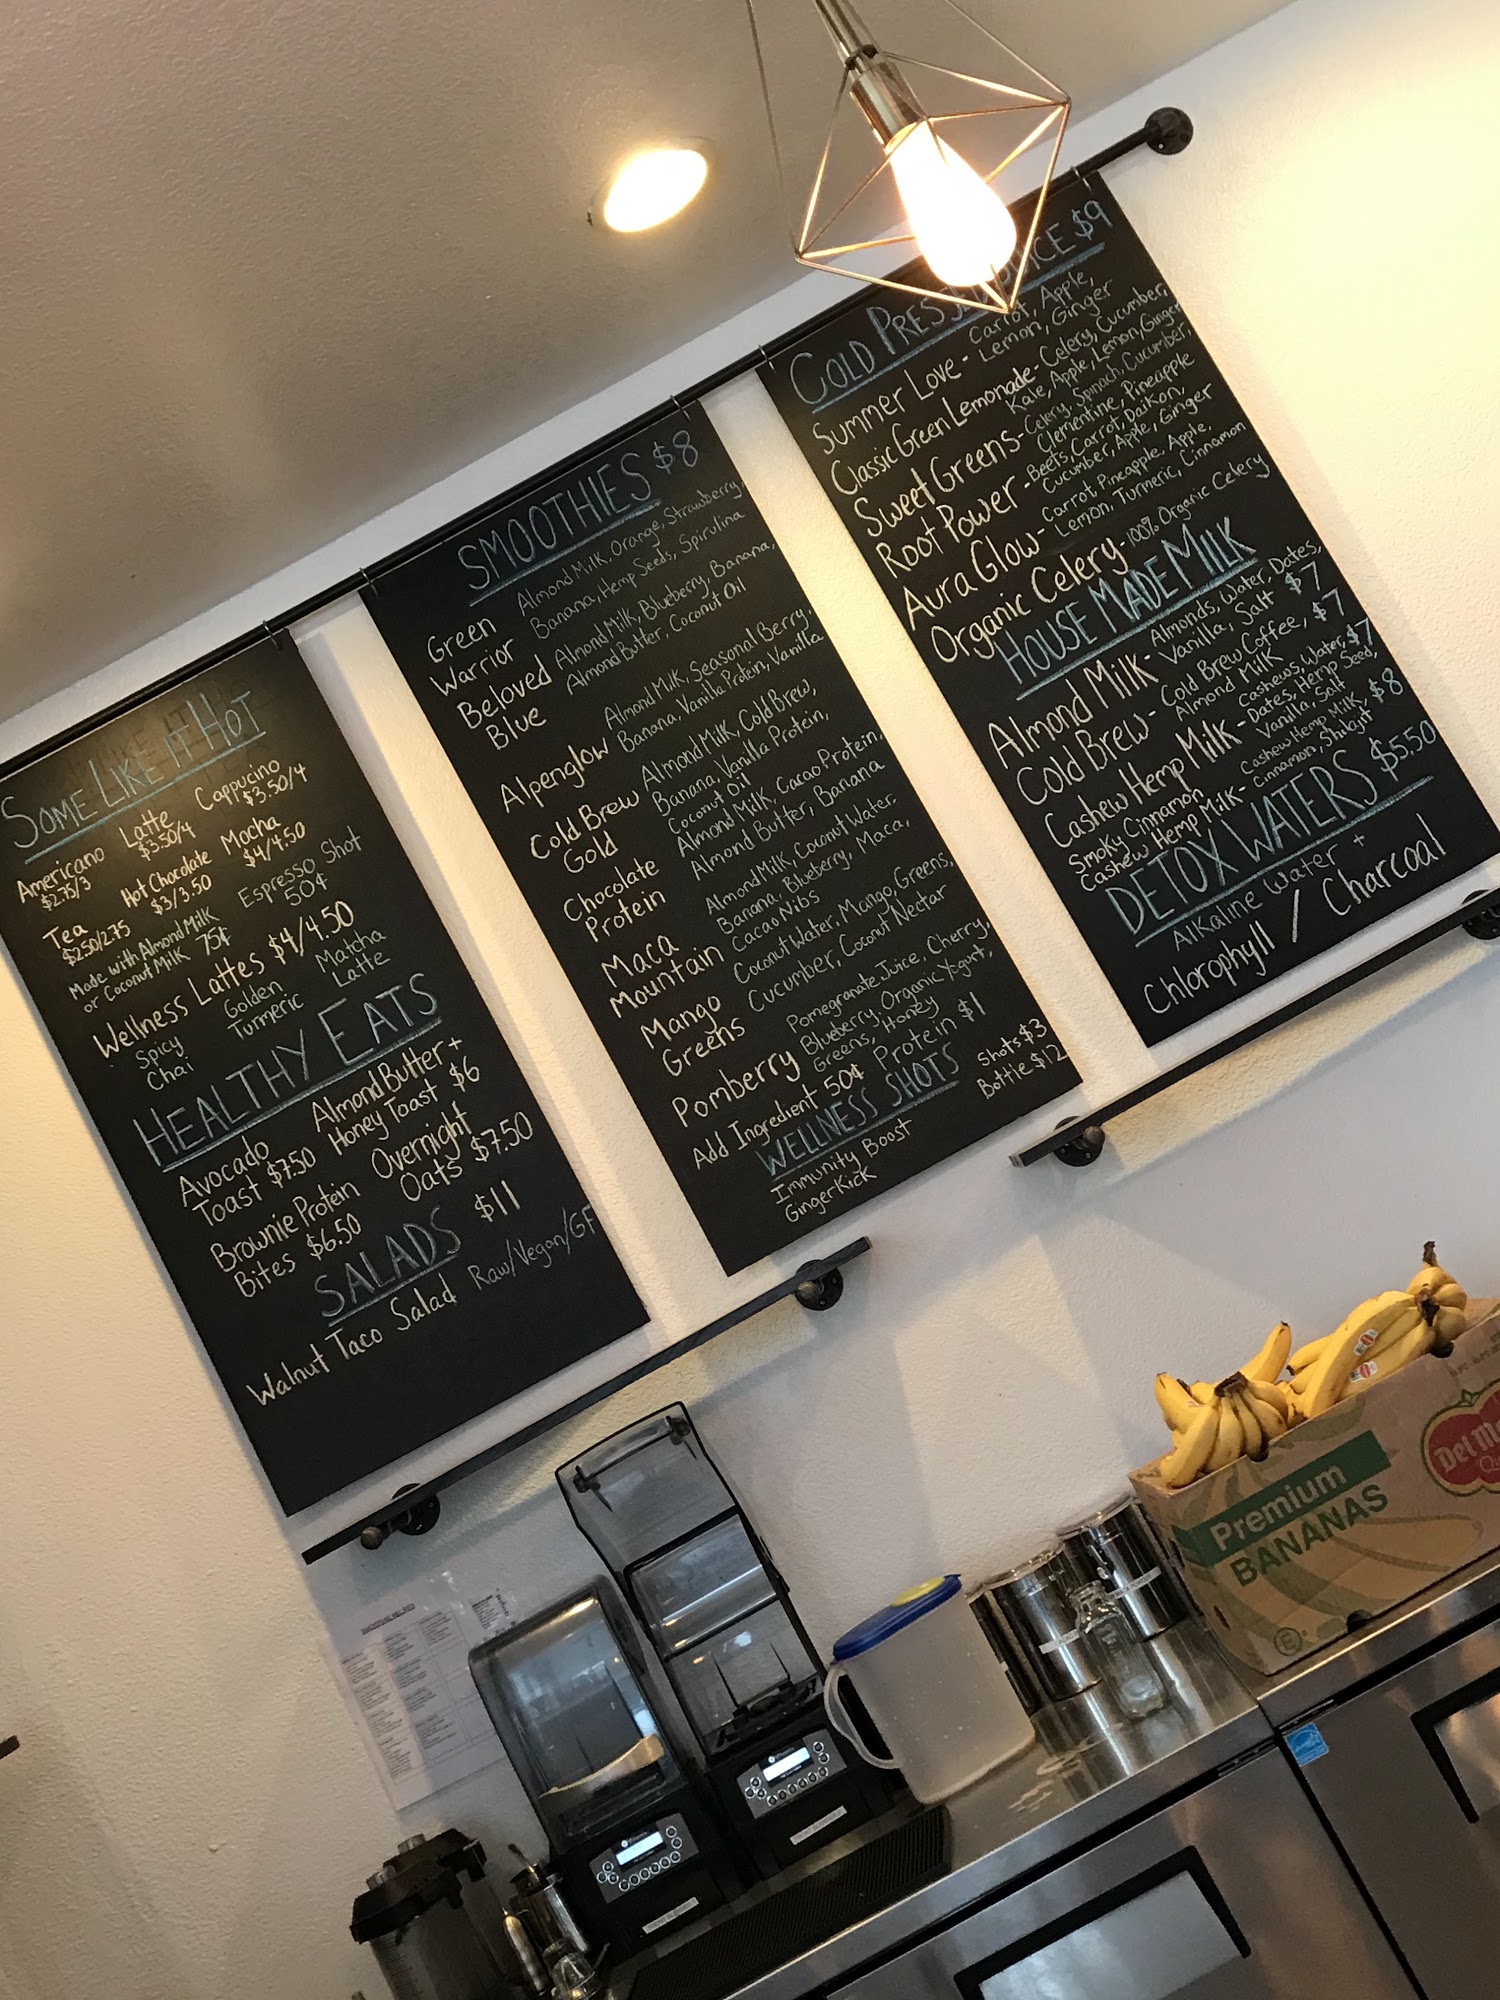 SOME LIKE IT HOT
Americano
$2.75/3
Latte
$3.50/4
Cappucino
$3.50/4
Tea
$2.50/2.75
Hot Chocolate
$3/3.50
Mocha
$4/4.50
Made with Almond Milk
or Coconut Milk 75¢
Espresso Shot
50¢
Wellness Lattes $4/4.50
Spicy
Chai
Golden
Turmeric
Matcha
Latte
HEALTHY EATS
Avocado
Toast $7.50
Almond Butter +
Honey Toast $6
Brownie Protein
Bites $6.50
Overnight
Oats $7.50
SALADS $11
Walnut Taco Salad Raw/Vegan/GF
SMOOTHIES $8
Green
Warrior
Almond Milk, Orange, Strawberry,
Banana, Hemp Seeds, Spirulina
Beloved
Blue
Almond Milk, Blueberry, Banana,
Almond Butter, Coconut Oil
Alpenglow
Almond Milk, Seasonal Berry,
Banana, Vanilla Protein, Vanilla
Cold Brew
Gold
Almond Milk, Cold Brew,
Banana, Vanilla Protein,
Coconut Oil
Chocolate
Protein
Almond Milk, Cacao Protein,
Almond Butter, Banana
Maca
Mountain
Almond Milk, Coconut Water,
Banana, Blueberry, Maca,
Cacao Nibs
Mango
Greens
Coconut Water, Mango, Greens,
Cucumber, Coconut Nectar
Pomberry
Pomegranate Juice, Cherry,
Blueberry, Organic Yogurt,
Greens, Honey
Add Ingredient 50¢ Protein $1
WELLNESS SHOTS
Shots $3
Bottle $12
Immunity Boost
Ginger Kick
COLD PRESSED JUICE $9
Summer Love - Carrot, Apple,
Lemon, Ginger
Classic Green Lemonade - Celery, Cucumber,
Kale, Apple, Lemon, Ginger
Sweet Greens - Celery, Spinach, Cucumber,
Clementine, Pineapple
Root Power - Beets, Carrot, Daikon,
Cucumber, Apple, Ginger
Aura Glow - Carrot, Pineapple, Apple,
Lemon, Turmeric, Cinnamon
Organic Celery - 100% Organic Celery
HOUSE MADE MILK
Almond Milk - Almonds, Water, Dates,
Vanilla, Salt $7
Cold Brew - Cold Brew Coffee, $7
Almond Milk
Cashew Hemp Milk - Cashews, Water, $7
Dates, Hemp Seed,
Vanilla, Salt
Smoky Cinnamon
Cashew Hemp Milk - Cashew Hemp Milk, $8
Cinnamon, Shilajit
DETOX WATERS $5.50
Alkaline Water +
Chlorophyll / Charcoal
Premium
BANANAS
Del Mo